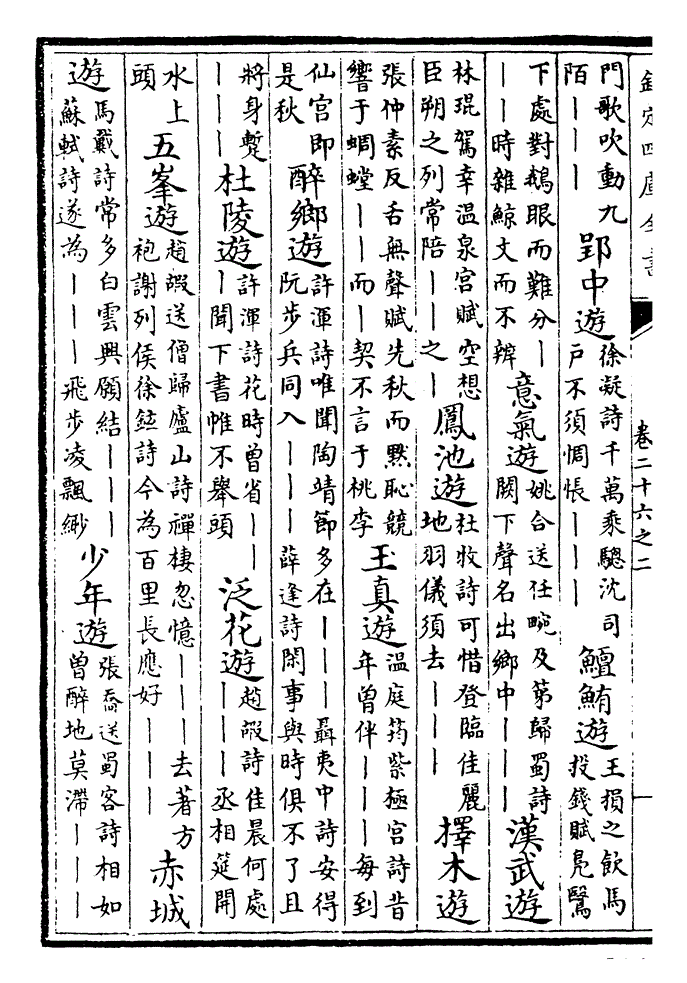 欽定四庫全書
卷二十六之二
一
門歌吹動九
陌｜｜｜
郢中遊
徐凝詩千萬乘驄沈司
户不須惆悵｜｜｜
鱣鮪遊
王損之飲馬
投錢賦鳧鷖
下處對鵝眼而難分｜
｜｜時雜鯨文而不辨
意氣遊
姚合送任畹及第歸蜀詩
闕下聲名出鄉中｜｜｜
漢武遊
林琨駕幸温泉宫賦空想
臣朔之列常陪｜｜之｜
鳳池遊
杜牧詩可惜登臨佳麗
地羽儀須去｜｜｜
擇木遊
張仲素反舌無聲賦先秋而黙恥競
響于蜩螗｜｜而｜契不言于桃李
玉真遊
温庭筠紫極宫詩昔
年曾伴｜｜｜每到
仙宫即
是秋
醉鄉遊
許渾詩唯聞陶靖節多在｜｜｜聶夷中詩安得
阮步兵同入｜｜｜薛逢詩閑事與時俱不了且
將身蹔
｜｜｜
杜陵遊
許渾詩花時曾省｜｜
｜聞下書帷不舉頭
泛花遊
趙嘏詩佳晨何處
｜｜｜丞相筵開
水上
頭
五峯遊
趙嘏送僧歸廬山詩禪棲忽憶｜｜｜去著方
袍謝列侯徐鉉詩今為百里長應好｜｜｜
赤城
遊
馬戴詩常多白雲興願結｜｜｜
蘇軾詩遂為｜｜｜飛步凌飄緲
少年遊
張喬送蜀客詩相如
曾醉地莫滯｜｜｜